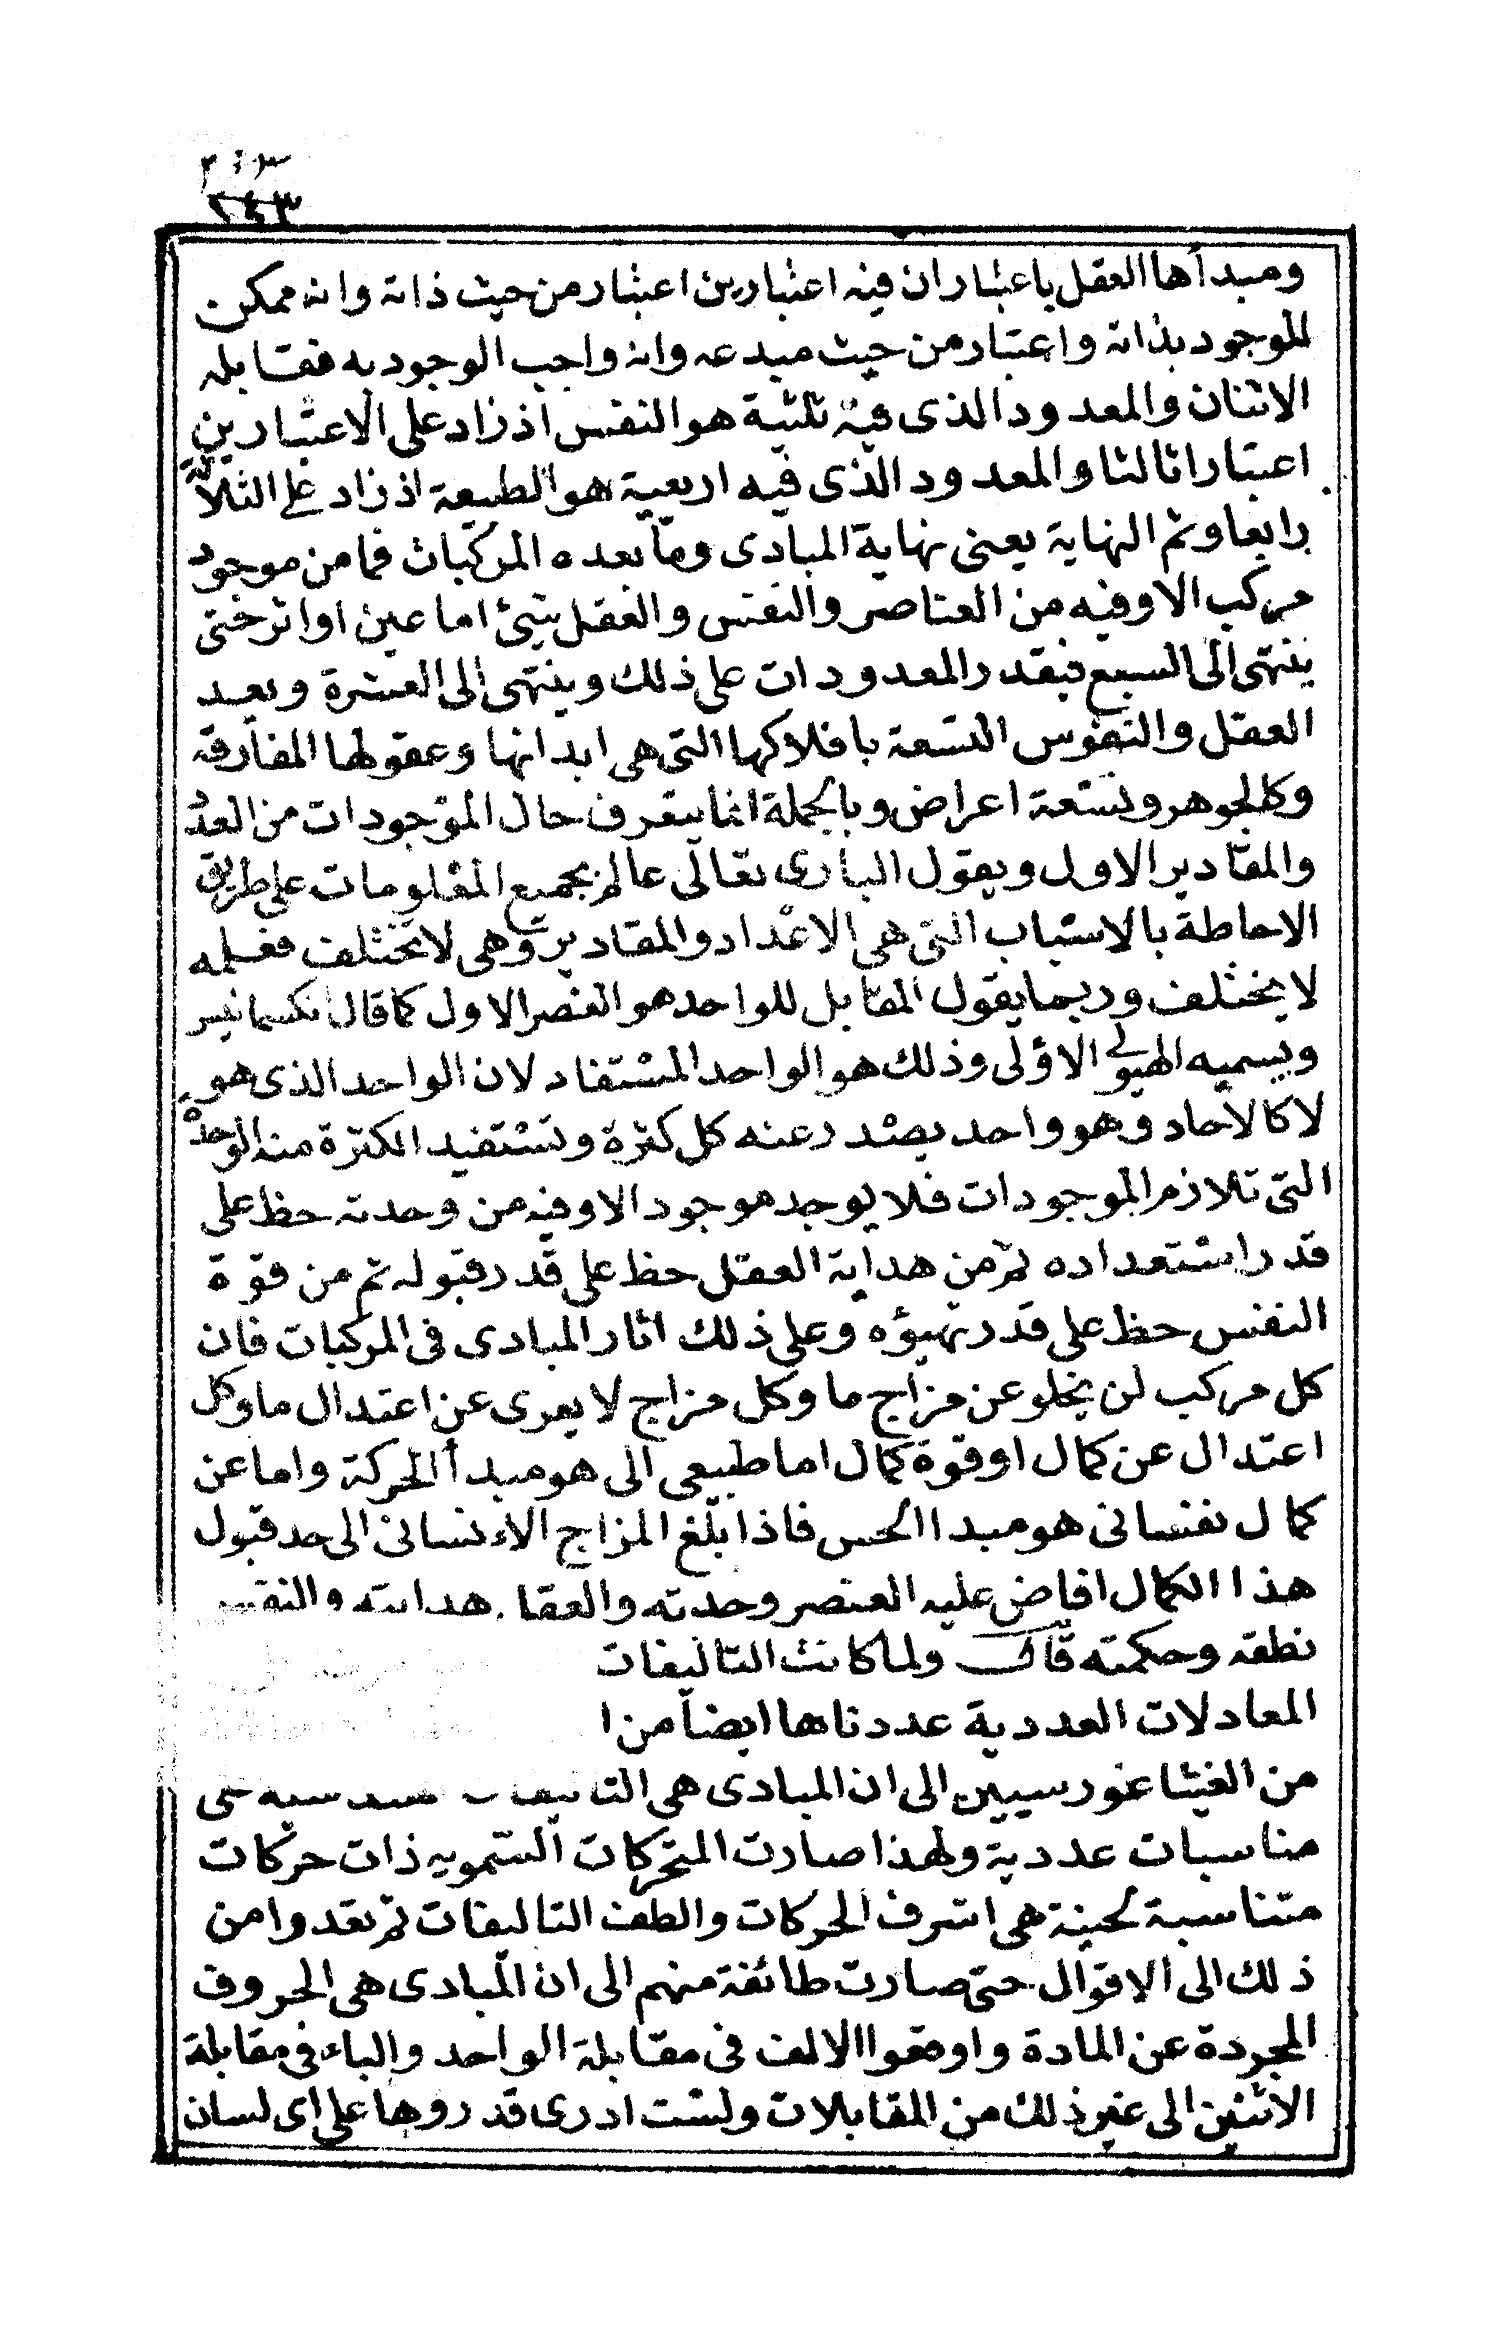 ٢٠٣
٢٤٣
ومبدأها العقل باعتبار ان فيه اعتبارين اعتبار من حيث ذاته وانه ممكن
الموجود بذاته واعتبار من حيث مبدعه وانه واجب الوجود به فقابله
الاثنان والمعدود الذى فيه ثلثية هو النفس اذ زاد على الاعتبارين
اعتبارا ثالثا والمعدود الذى فيه اربعية هو الطبيعة اذ زاد على الثلاثة
رابعا وثم النهاية يعنى نهاية المبادى وما بعده المركبات فما من موجود
مركب الا وفيه من العناصر والنفس والعقل شئ اما عين او اثر حتى
ينتهى الى السبع فبقدر المعدودات على ذلك وينتهى الى العشرة وبعد
العقل والنفوس التسعة بافلاكها التى هى ابدانها وعقولها المفارقة
وكالجوهر وتسعة اعراض وبالجملة انما يتعرف حال الموجودات من العدد
والمقادير الاول ويقول البارى تعالى عالم بجميع المعلومات على طريق
الاحاطة بالاسباب التى هى الاعداد والمقادير وهى لا تختلف فعلمه
لا يختلف وربما يقول المقابل للواحد هو العنصر الاول كما قال انكسمانيس
ويسميه الهيولى الاولى وذلك هو الواحد المستفاد لان الواحد الذى هو
لا كالآحاد وهو واحد يصدر عنه كل كثرة وتستفيد الكثرة منه الوحدة
التى تلازم الموجودات فلا يوجد موجود الا وفيه من وحدته حظ على
قدر استعداده ثم من هداية العقل حظ على قدر قبوله ثم من قوة
النفس حظ على قدر تهيؤه وعلى ذلك اثار المبادى فى المركبات فان
كل مركب لن يخلو عن مزاج ما وكل مزاج لا يعرى عن اعتدال ما وكل
اعتدال عن كمال او قوة كمال اما طبيعى الى هو مبدأ الحركة واما عن
كمال نفسانى هو مبدا الحس فاذا بلغ المزاج الانسانى الى حد قبول
هذا الكمال افاض عليه العنصر وحدته والعقل هدايته والنفس
نطقه وحكمته قال ولما كانت التاليفات
المعادلات العددية عددناها ايضا من ا
من الفيثاغورسيين الى ان المبادى هى التاليفات
مناسبات عددية ولهذا صارت المتحركات السموية ذات حركات
متناسبة لحنية هى اشرف الحركات والطف التاليفات ثم تعدوا من
ذلك الى الاقوال حتى صارت طائفة منهم الى ان المبادى هى الحروف
المجردة عن المادة واوقعوا الالف فى مقابلة الواحد والباء فى مقابلة
الاثنين الى غير ذلك من المقابلات ولست ادرى قدروها على اى لسان